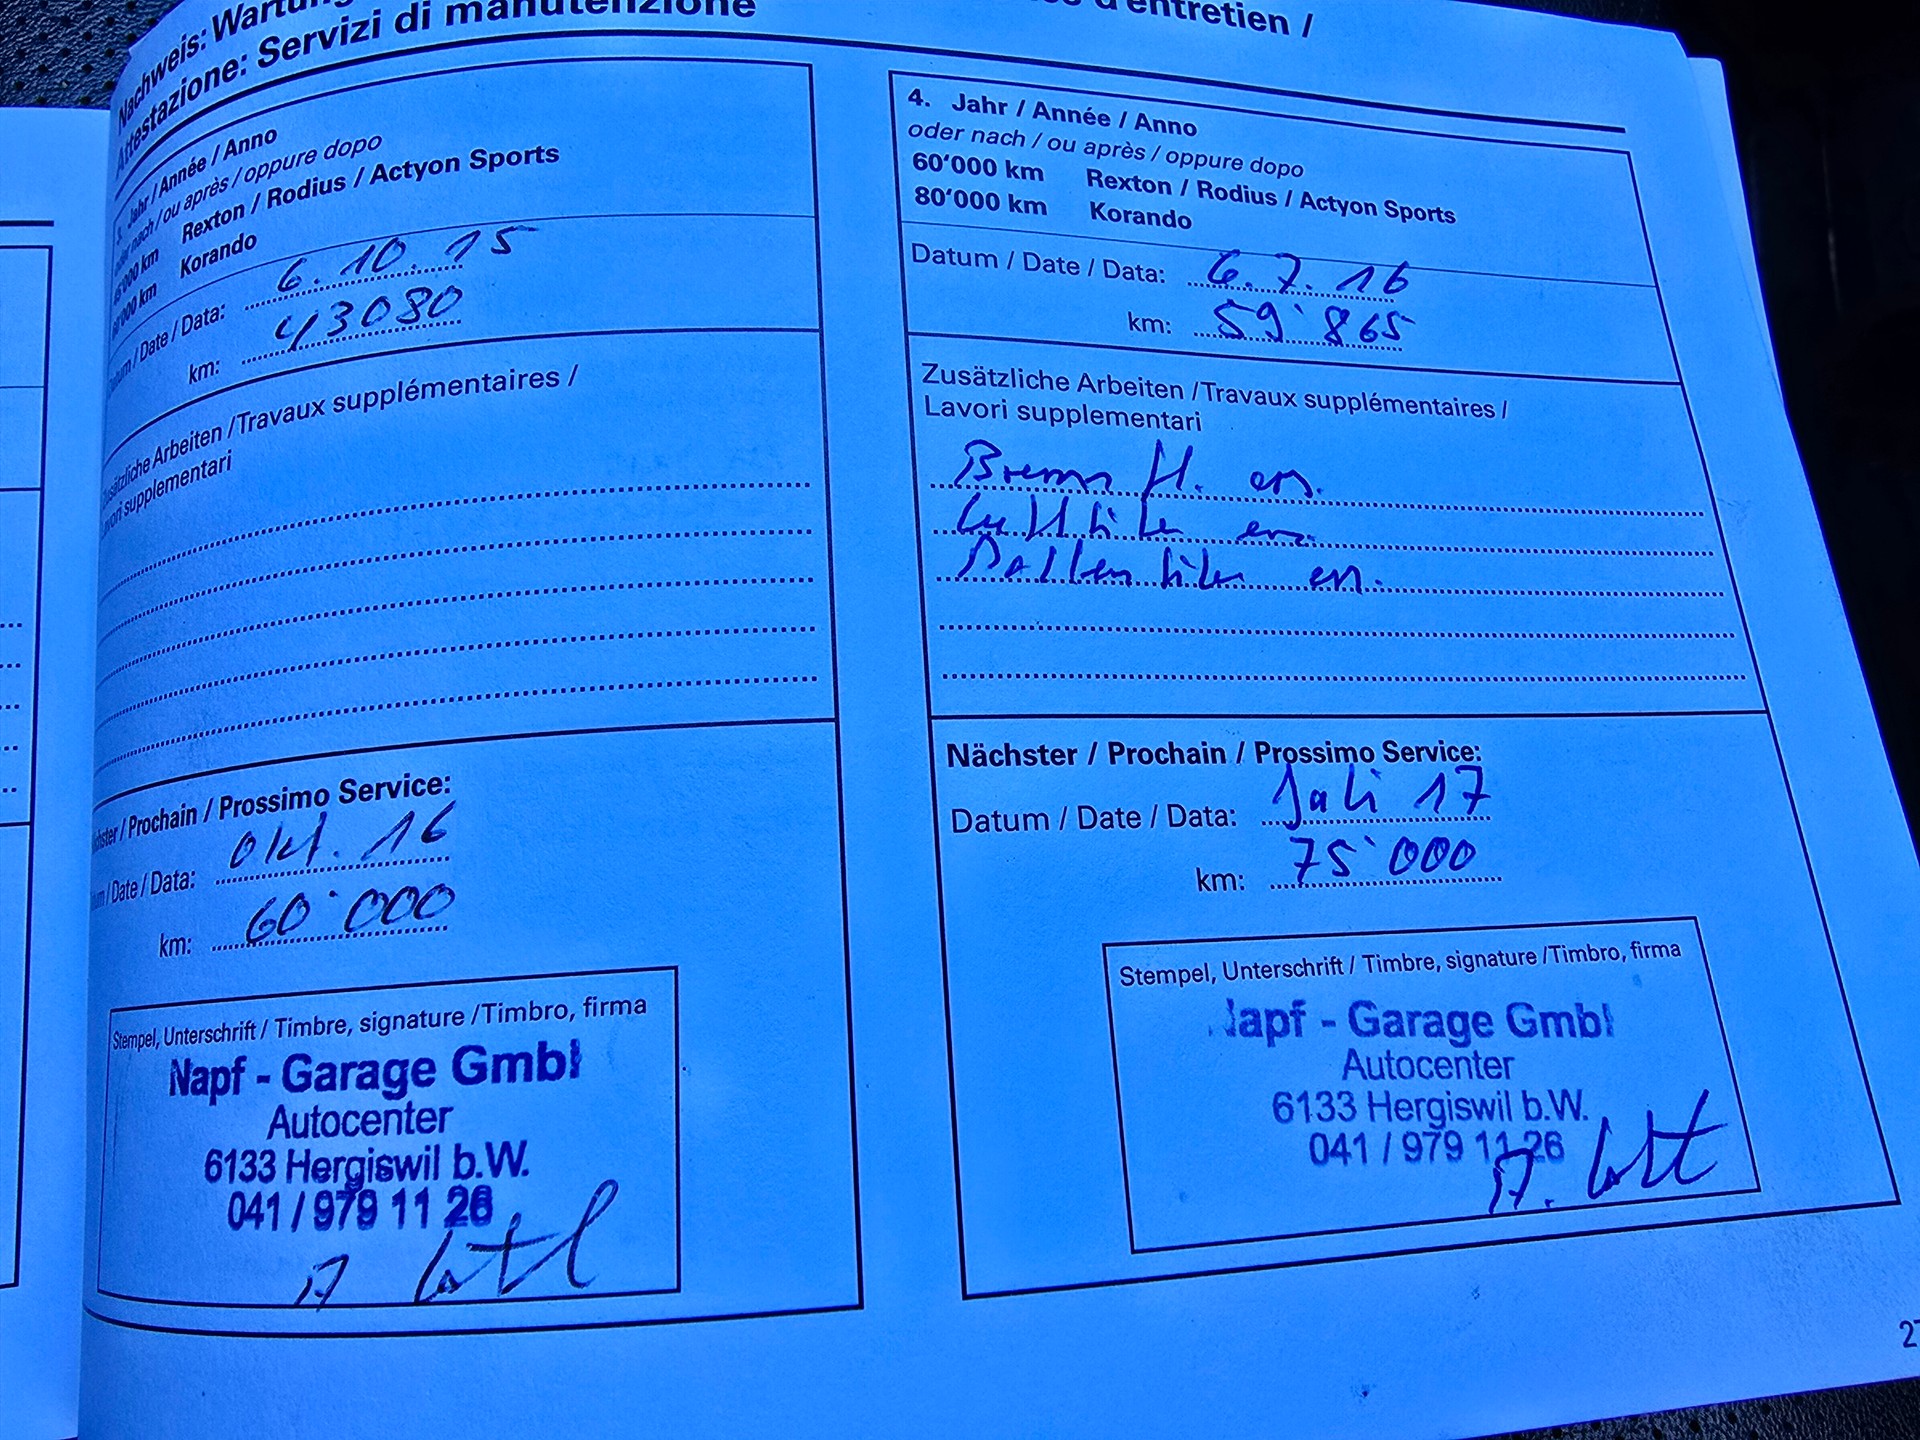 Nachweis: Wartung
d'entretien /
Attestazione: Servizi di manutenzione
3. Jahr / Année / Anno
oder nach / ou après / oppure dopo
45'000 km Rexton / Rodius / Actyon Sports
60'000 km Korando
Datum / Date / Data: 6.10.15
km: 43080
Zusätzliche Arbeiten / Travaux supplémentaires /
Lavori supplementari
Nächster / Prochain / Prossimo Service:
Datum / Date / Data: Okt. 16
km: 60'000
Stempel, Unterschrift / Timbre, signature / Timbro, firma
Napf - Garage GmbH
Autocenter
6133 Hergiswil b.W.
041 / 979 11 26
4. Jahr / Année / Anno
oder nach / ou après / oppure dopo
60'000 km Rexton / Rodius / Actyon Sports
80'000 km Korando
Datum / Date / Data: 6.7.16
km: 59'865
Zusätzliche Arbeiten / Travaux supplémentaires /
Lavori supplementari
Brems fl. ers.
Luftfilter ers.
Pollenfilter ers.
Nächster / Prochain / Prossimo Service:
Datum / Date / Data: Juli 17
km: 75'000
Stempel, Unterschrift / Timbre, signature / Timbro, firma
Napf - Garage GmbH
Autocenter
6133 Hergiswil b.W.
041 / 979 11 26